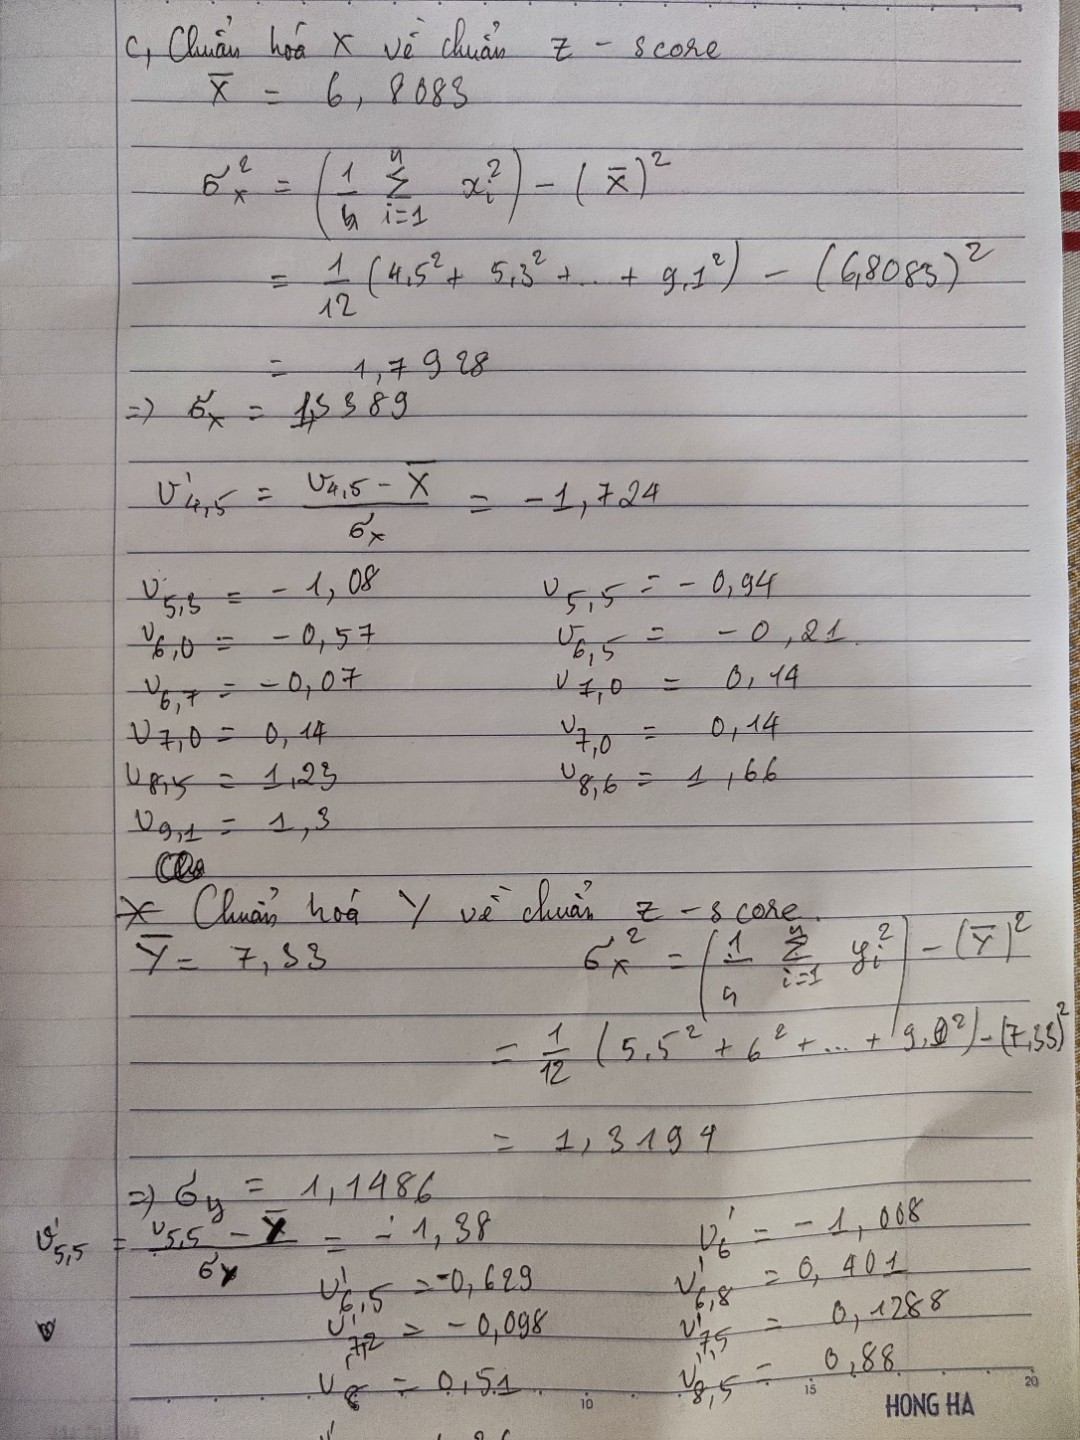 c, Chuẩn hoá X về chuẩn z - score
X̄ = 6,8083
σₓ² = (1/n Σᵢ₌₁ⁿ xᵢ²) - (X̄)²
= 1/12 (4,5² + 5,3² + ... + 9,1²) - (6,8083)²
= 1,7928
=> σₓ = 1,3389
v'4,5 = (v4,5 - X̄)/σₓ = -1,724
v5,3 = -1,08 v5,5 = -0,94
v6,0 = -0,57 v6,5 = -0,21
v6,7 = -0,07 v7,0 = 0,14
v7,0 = 0,14 v7,0 = 0,14
v8,5 = 1,23 v8,6 = 1,66
v9,1 = 1,3
* Chuẩn hoá Y về chuẩn z - score.
Ȳ = 7,33 σₓ² = (1/n Σᵢ₌₁ⁿ yᵢ²) - (Ȳ)²
= 1/12 (5,5² + 6² + ... + 9,0²) - (7,33)²
= 1,3194
=> σy = 1,1486
v'5,5 = (v5,5 - Ȳ)/σy = -1,38 v'6 = -1,008
v'6,5 = -0,629 v'6,8 = 0,401
v'7,2 = -0,098 v'7,5 = 0,1288
v8 = 0,51 v'8,5 = 0,88
10 15 20
HONG HA